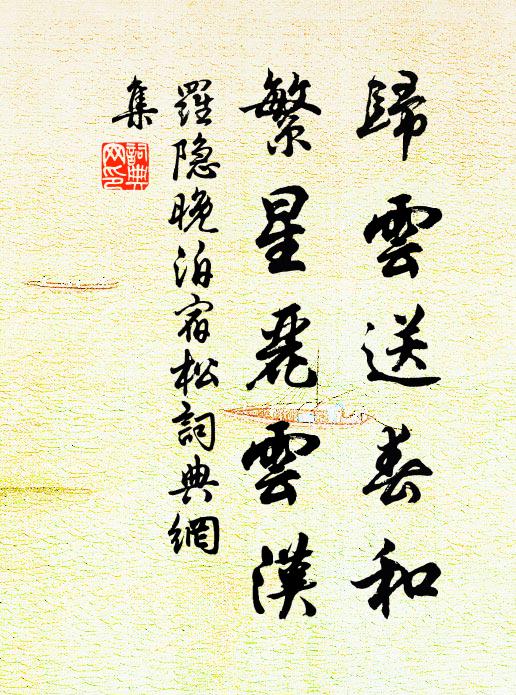 歸雲送春和
繁星麗雲漢
羅隐晚泊宿松詞典網
集
詞典
网印